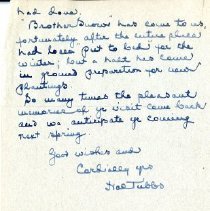 had done.
Brother Snow's has come to us,
fortunately, after the entire place
had been put to bed for the
winter; but a half has come
in ground preparation for new
plantings.
So many times the pleasant
memories of yr visit come back
and we anticipate yr coming
next spring.
Good wishes and
Cordially yrs
Hal Tubbs